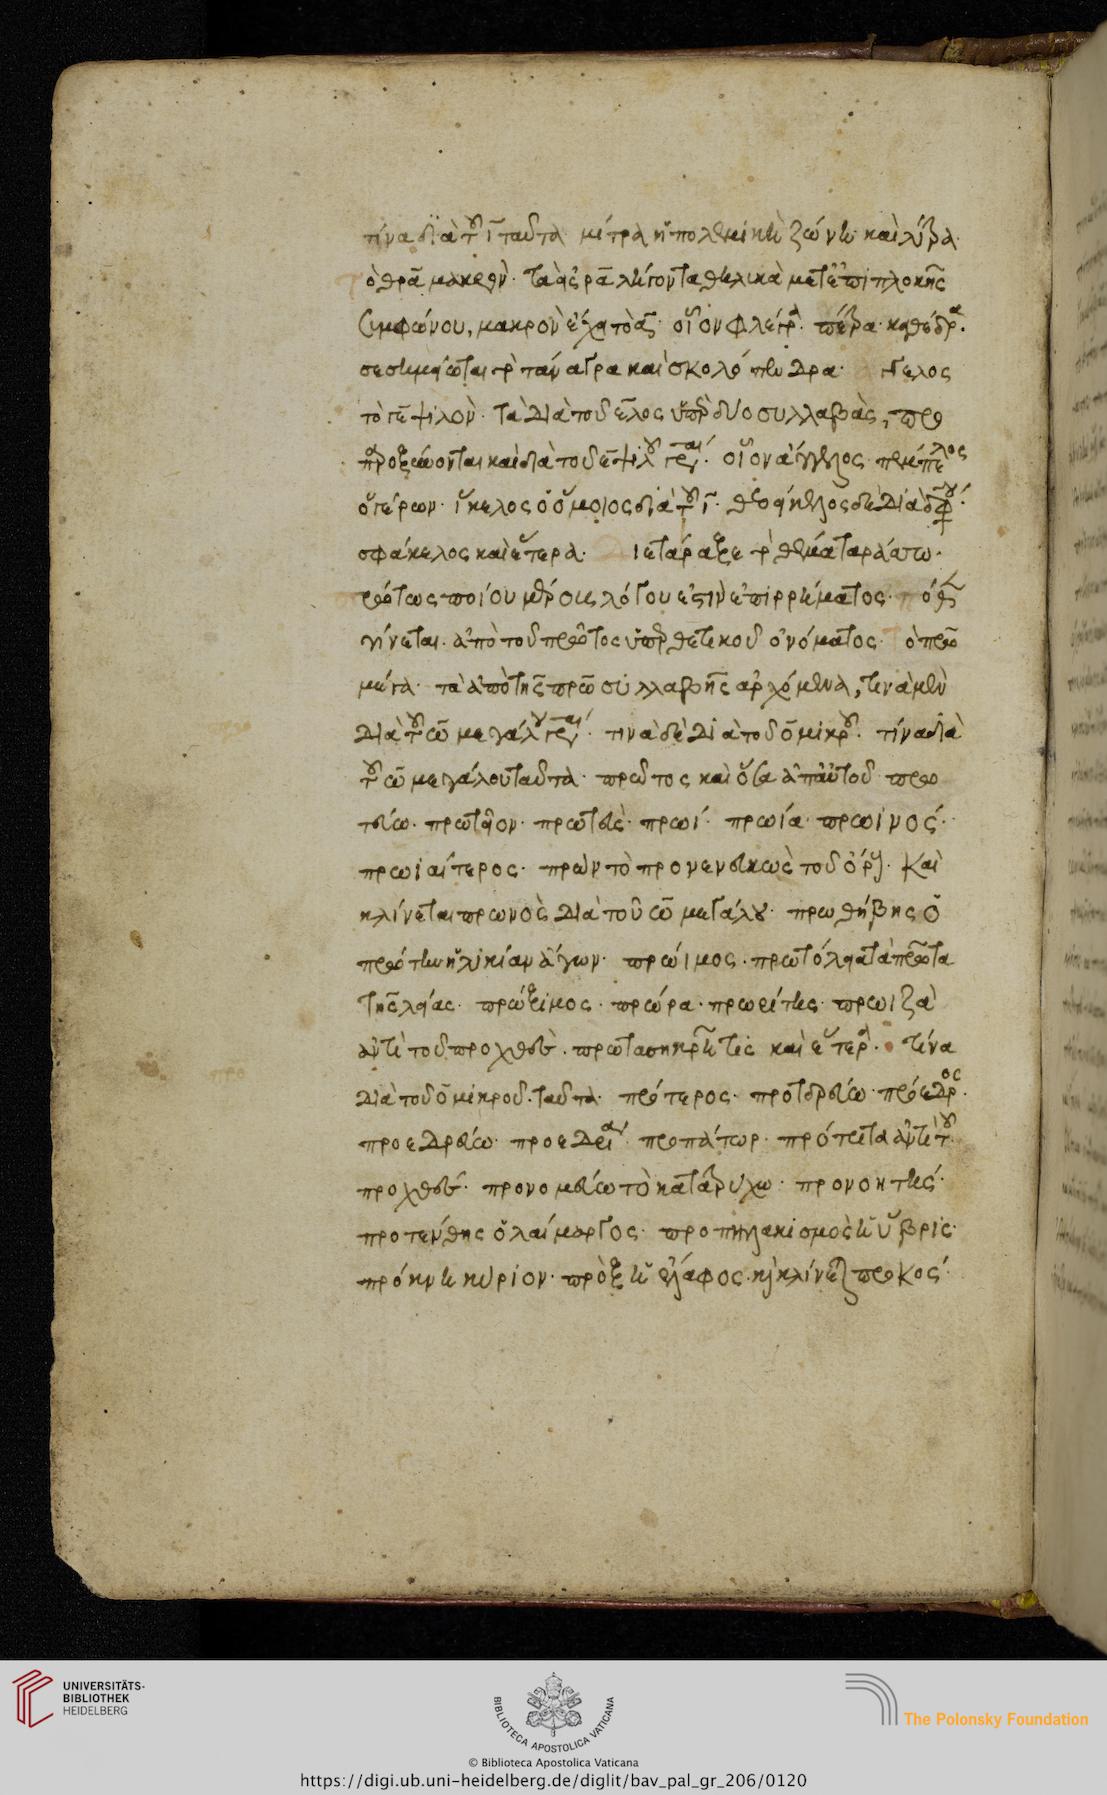 τίνα διὰ τοῦ ι ταῦτα μίτρα ἡ πολεμικὴ ζώνη καὶ λίβρα
μακρὸν τὰ εἰς ρα λήγοντα θηλικὰ μετ' ἐπιπλοκῆς
συμφώνου, μακρὸν ἔχει τὸ α οἷον καθέδρα
σεσημείωται τὸ τάναγρα καὶ σκολόπενδρα τελος
τὸ τε ψιλὸν τὰ διὰ τοῦ ελος ὑπὲρ δύο συλλαβὰς, προ
παροξύνονται καὶ διὰ τοῦ ε ψιλοῦ γράφεται οἷον ἄγγελος πέμπελος
ἴκελος ὁ ὅμοιος διὰ τοῦ ι θεοείκελος δὲ διὰ διφθόγγου
σφάκελος καὶ ἕτερα ετάραξε τὸ θέμα ταράσσω
πρότως ποίου μέρους λόγου ἐστὶν ἐπιρρήματος
γίνεται ἀπὸ τοῦ πρῶτος ὑπερθετικοῦ ὀνόματος ὁ προ
μέγα τὰ ἀπὸ τῆς πρω συλλαβῆς ἀρχόμενα, τινὰ μὲν
διὰ τοῦ ω μεγάλου γράφεται τινὰ δὲ διὰ τοῦ ο μικροῦ τίνα διὰ
τοῦ ω μεγάλου ταῦτα πρῶτος καὶ ὅσα ἀπ' αὐτοῦ πρω
τεύω πρωτεῖον πρωτεὺς πρωί πρωία πρωινός
πρωιαίτερος πρὼν τὸ προνενευκὼς τοῦ ὄρους καὶ
κλίνεται πρωνὸς διὰ τοῦ ω μεγάλου πρωθήβης ὁ
πρώτην ἡλικίαν ἄγων πρώιμος πρωτόλεια τὰ πρῶτα
τῆς λείας πρώξιμος πρώρα πρωρείτης πρωιζὰ
ἀντὶ τοῦ προχθὲς πρωτασηκρῆτις καὶ ἕτερα τίνα
διὰ τοῦ ο μικροῦ ταῦτα πρότερος προτερεύω πρόεδρος
προεδρεύω προεδρεία προπάτωρ πρότριτα ἀντὶ τοῦ
προχθές προνομεύω τὸ κατατρύχω προνοητής
προτένθης ὁ λαίμαργος προπηλακισμὸς ἡ ὕβρις
πρόκνη κύριον πρὸξ ἡ ἔλαφος καὶ κλίνεται προκός
UNIVERSITÄTS-
BIBLIOTHEK
HEIDELBERG
BIBLIOTECA APOSTOLICA VATICANA
The Polonsky Foundation
© Biblioteca Apostolica Vaticana
https://digi.ub.uni-heidelberg.de/diglit/bav_pal_gr_206/0120